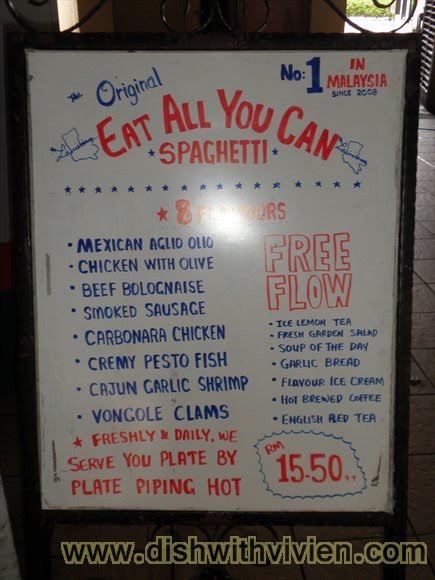 The Original
No: 1 IN MALAYSIA
SINCE 2008
EAT ALL YOU CAN
SPAGHETTI
Louisiana
Louisiana
★ 8 FLAVOURS
• MEXICAN AGLIO OLIO
• CHICKEN WITH OLIVE
• BEEF BOLOGNAISE
• SMOKED SAUSAGE
• CARBONARA CHICKEN
• CREMY PESTO FISH
• CAJUN GARLIC SHRIMP
• VONGOLE CLAMS
★ FRESHLY & DAILY, WE
SERVE YOU PLATE BY
PLATE PIPING HOT
FREE
FLOW
• ICE LEMON TEA
• FRESH GARDEN SALAD
• SOUP OF THE DAY
• GARLIC BREAD
• FLAVOUR ICE CREAM
• HOT BREWED COFFEE
• ENGLISH RED TEA
RM
15.50++
www.dishwithvivien.com